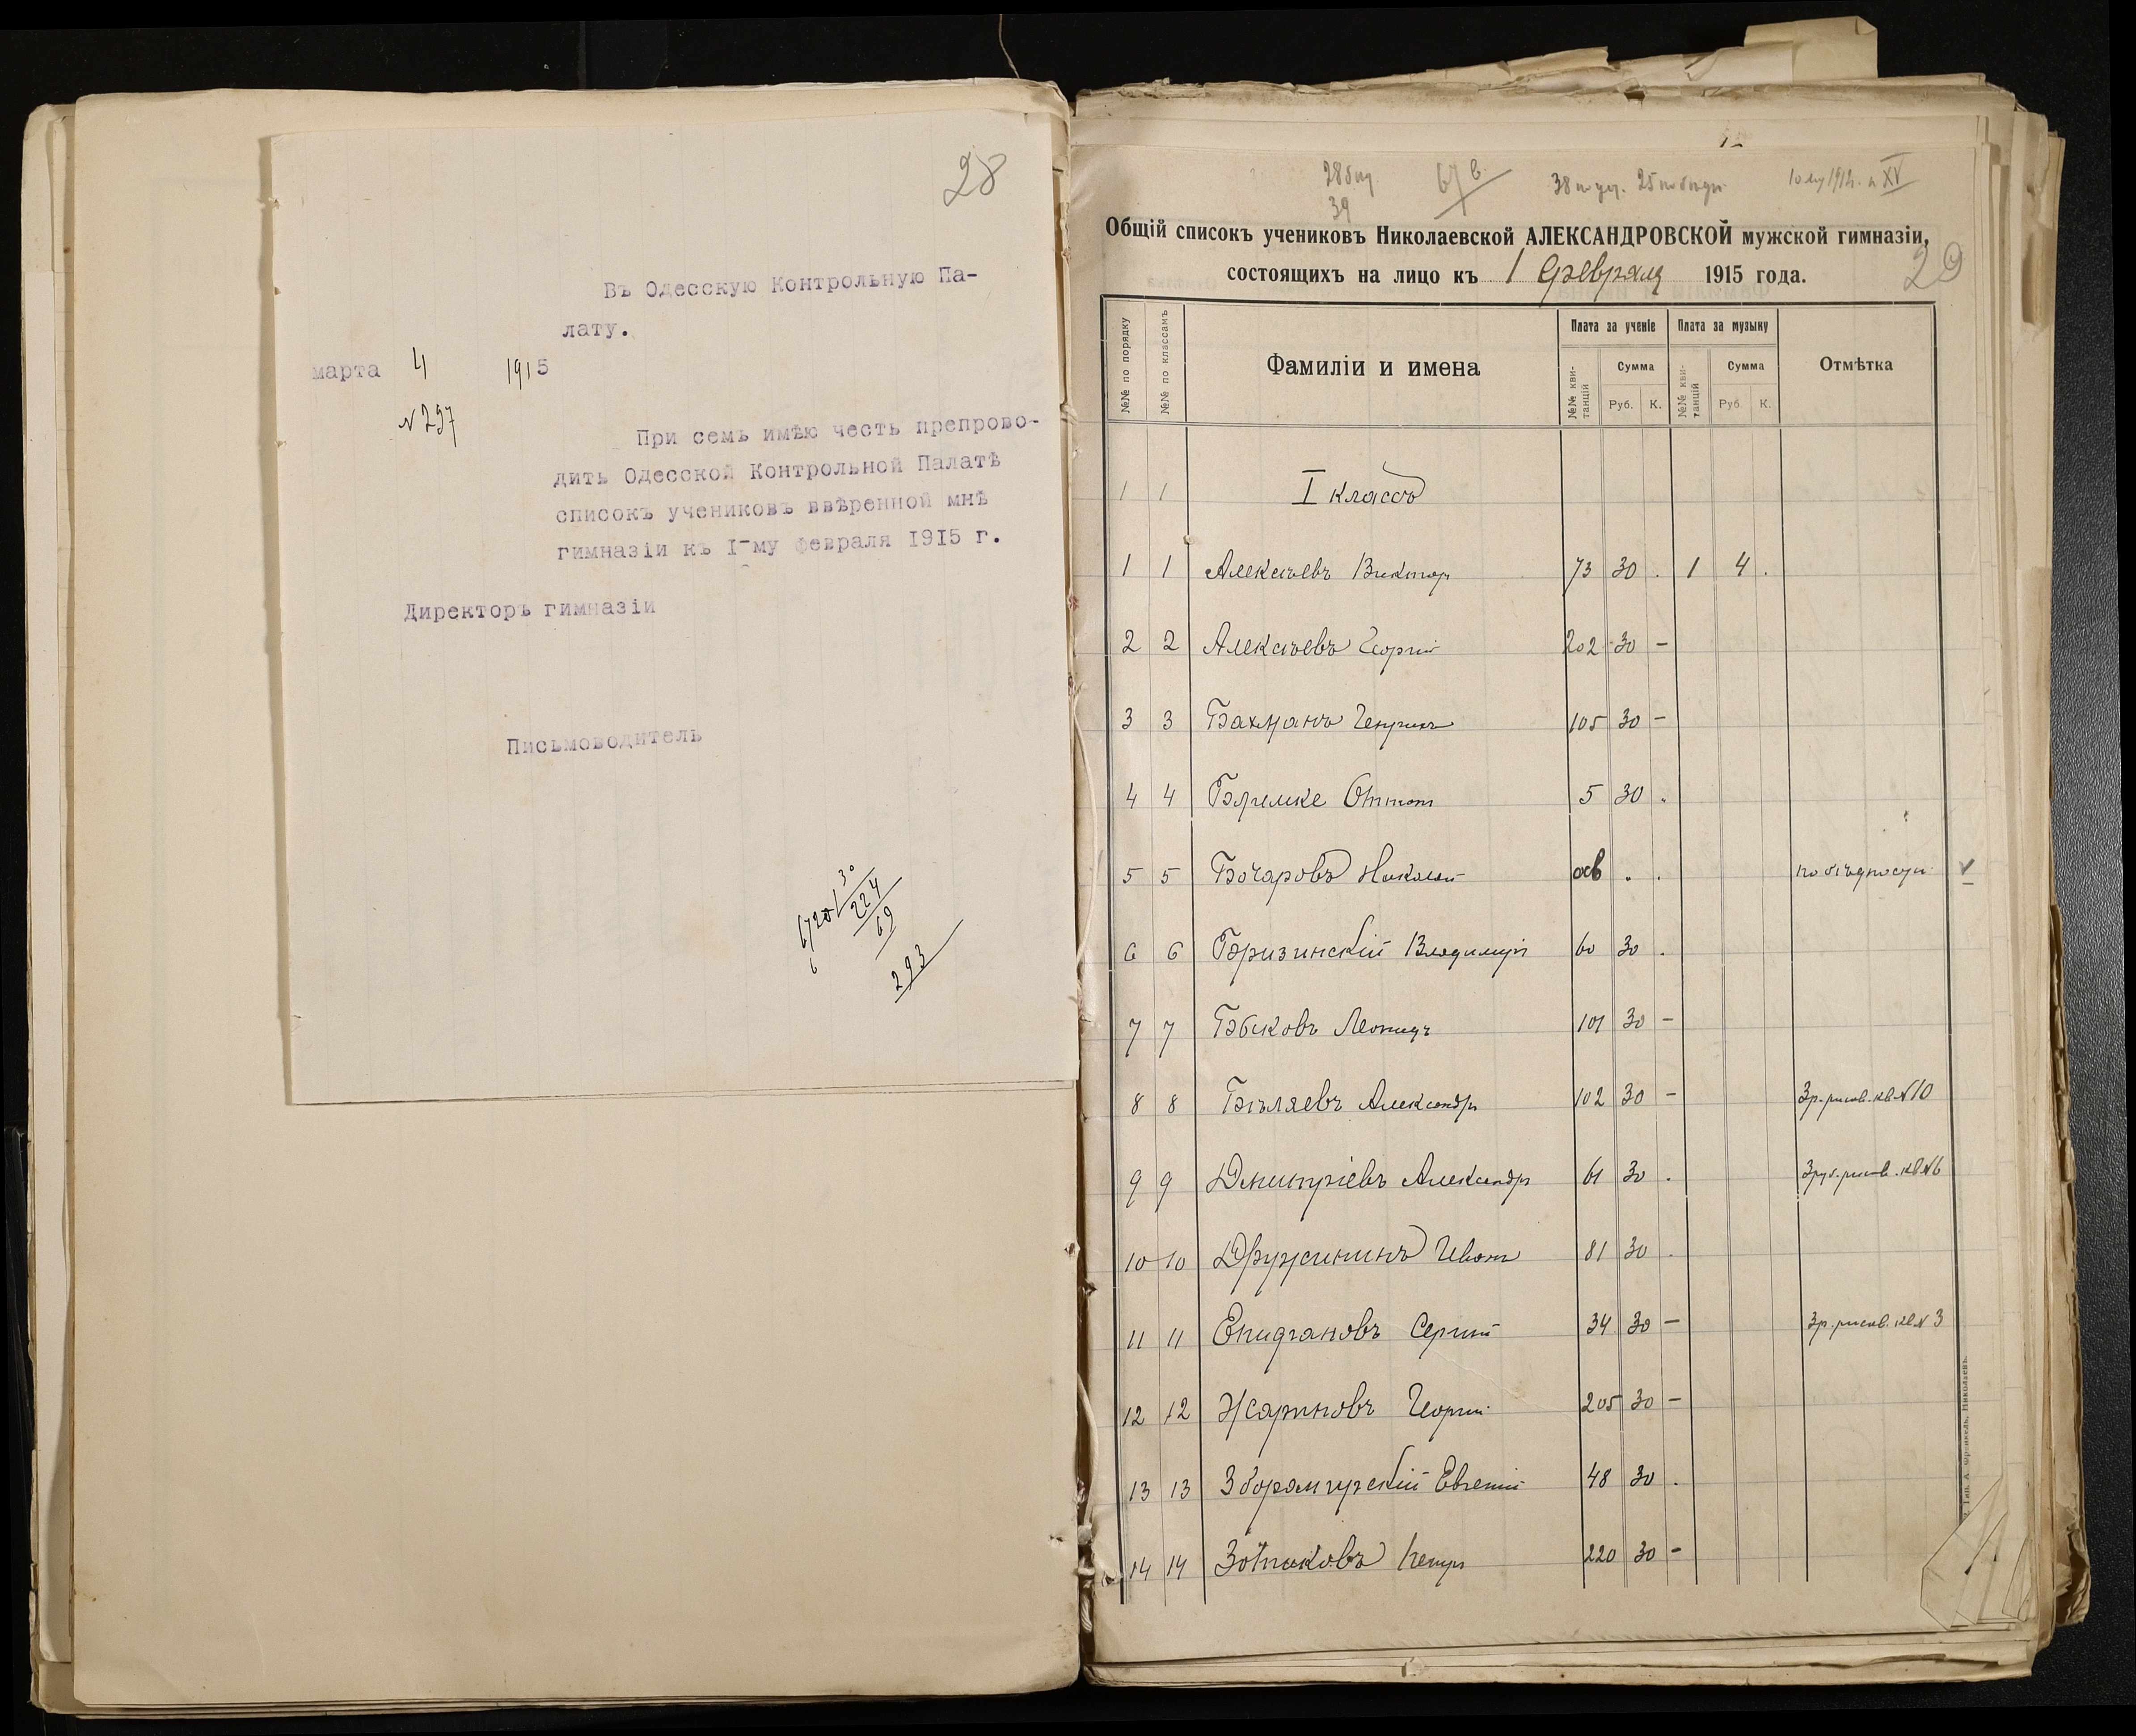 28
Въ Одесскую Контрольную Па-
лату.
марта 4 1915
N 297
При семъ имѣю честь препрово-
дить Одесской Контрольной Палатѣ
списокъ учениковъ ввѣренной мнѣ
гимназіи къ I-му февраля 1915 г.
Директоръ гимназіи
Письмоводитель
6720 30
224
69
293
39
29
Общій списокъ учениковъ Николаевской АЛЕКСАНДРОВСКОЙ мужской гимназіи,
состоящихъ на лицо къ 1 февраля 1915 года.
№№ по порядку №№ по классамъ Фамиліи и имена Плата за ученіе Плата за музыку Отмѣтка
№№ кви-танцій Сумма №№ кви-танцій Сумма
Руб. К. Руб. К.
1 1 I классъ
1 1 Алексѣевъ Викторъ 73 30 . 1 4 .
2 2 Алексѣевъ Георгій 202 30 —
3 3 Бахманъ Генрихъ 105 30 —
4 4 Бэлемке Оттонъ 5 30 .
5 5 Бочаровъ Николай осв . . по бѣдности
6 6 Бризинскій Владиміръ 60 30 .
7 7 Быковъ Леонидъ 101 30 —
8 8 Бѣляевъ Александръ 102 30 — 3 р. рисов. кв. N 10
9 9 Дмитріевъ Александръ 61 30 . 3 руб. рисов. кв. N 6
10 10 Дружининъ Иванъ 81 30 .
11 11 Епифановъ Сергій 34 30 — 3 р. рисов. кв. N 3
12 12 Жариновъ Георгій 205 30 —
13 13 Евгеній 48 30 .
14 14 Зотиковъ Петръ 220 30 —
Тип. А. Френкель, Николаевъ.